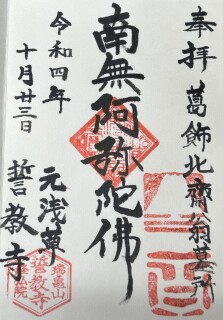 奉拝
葛飾北齋翁墓所
南無阿弥陀佛
令和四年
十月廿三日
元浅草
誓教寺
瑞亀山
誓教寺